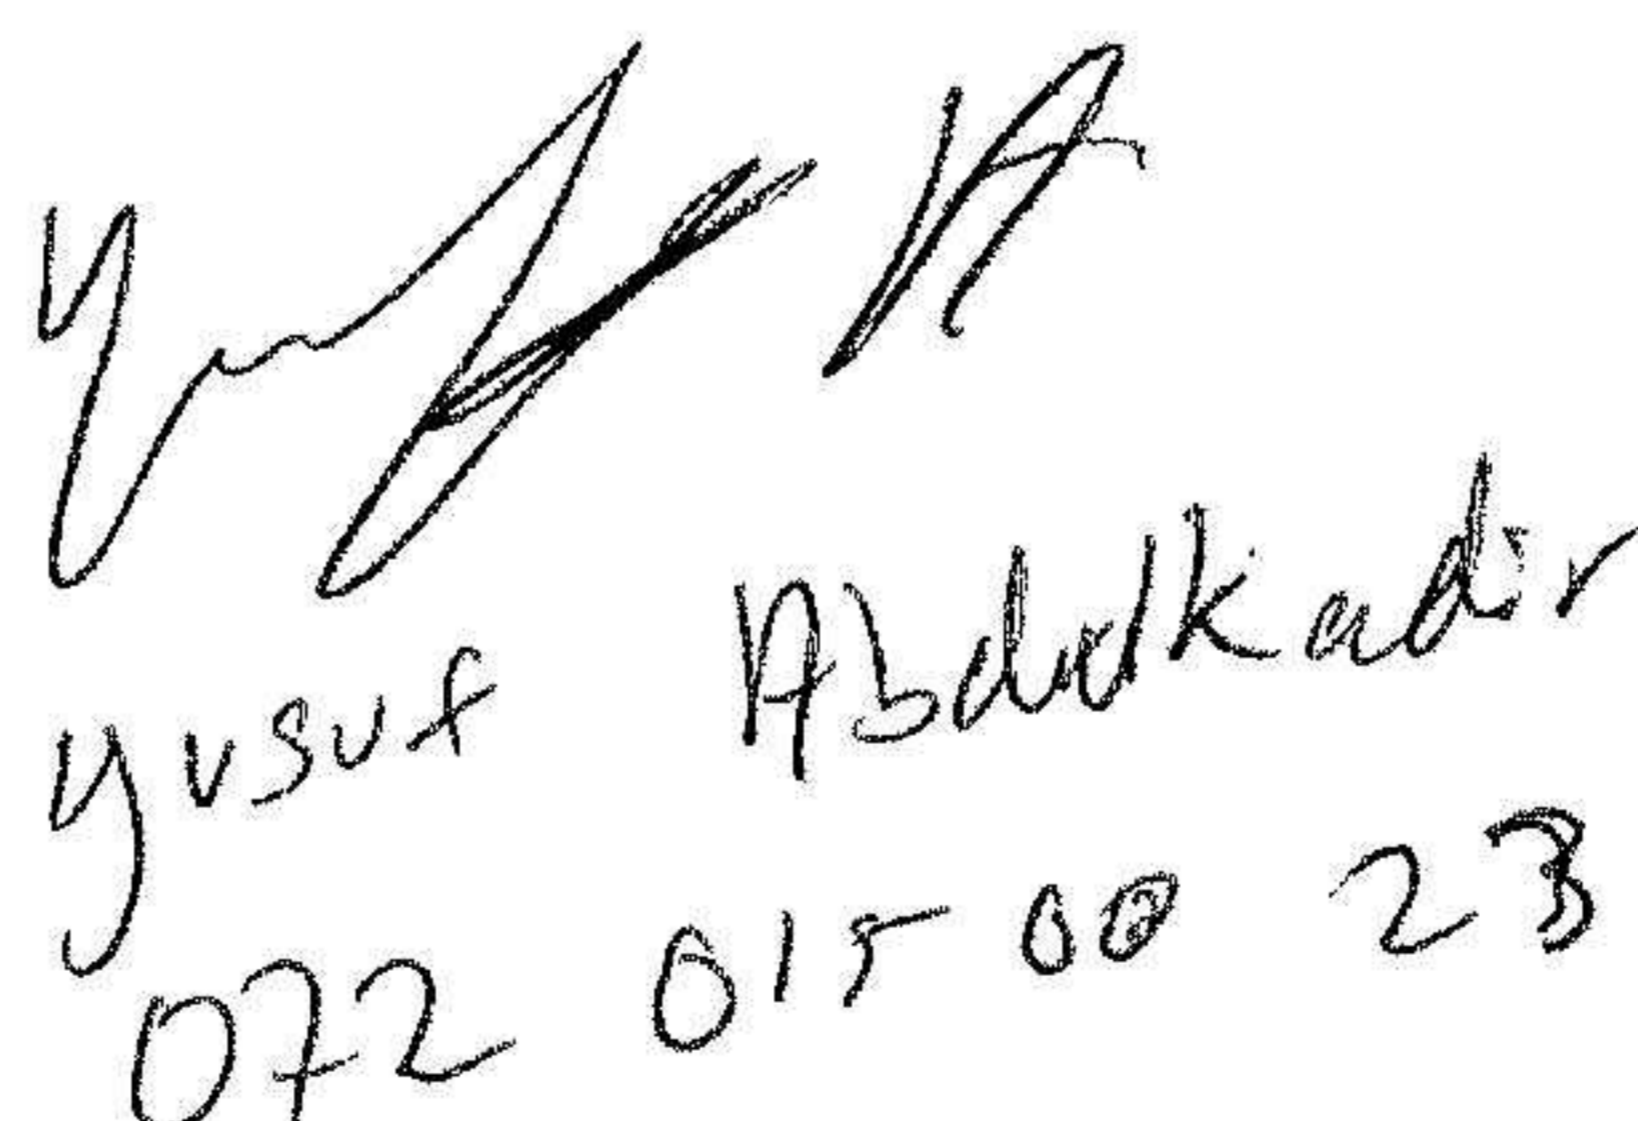 Yusuf Abdulkadir
072 015 00 23